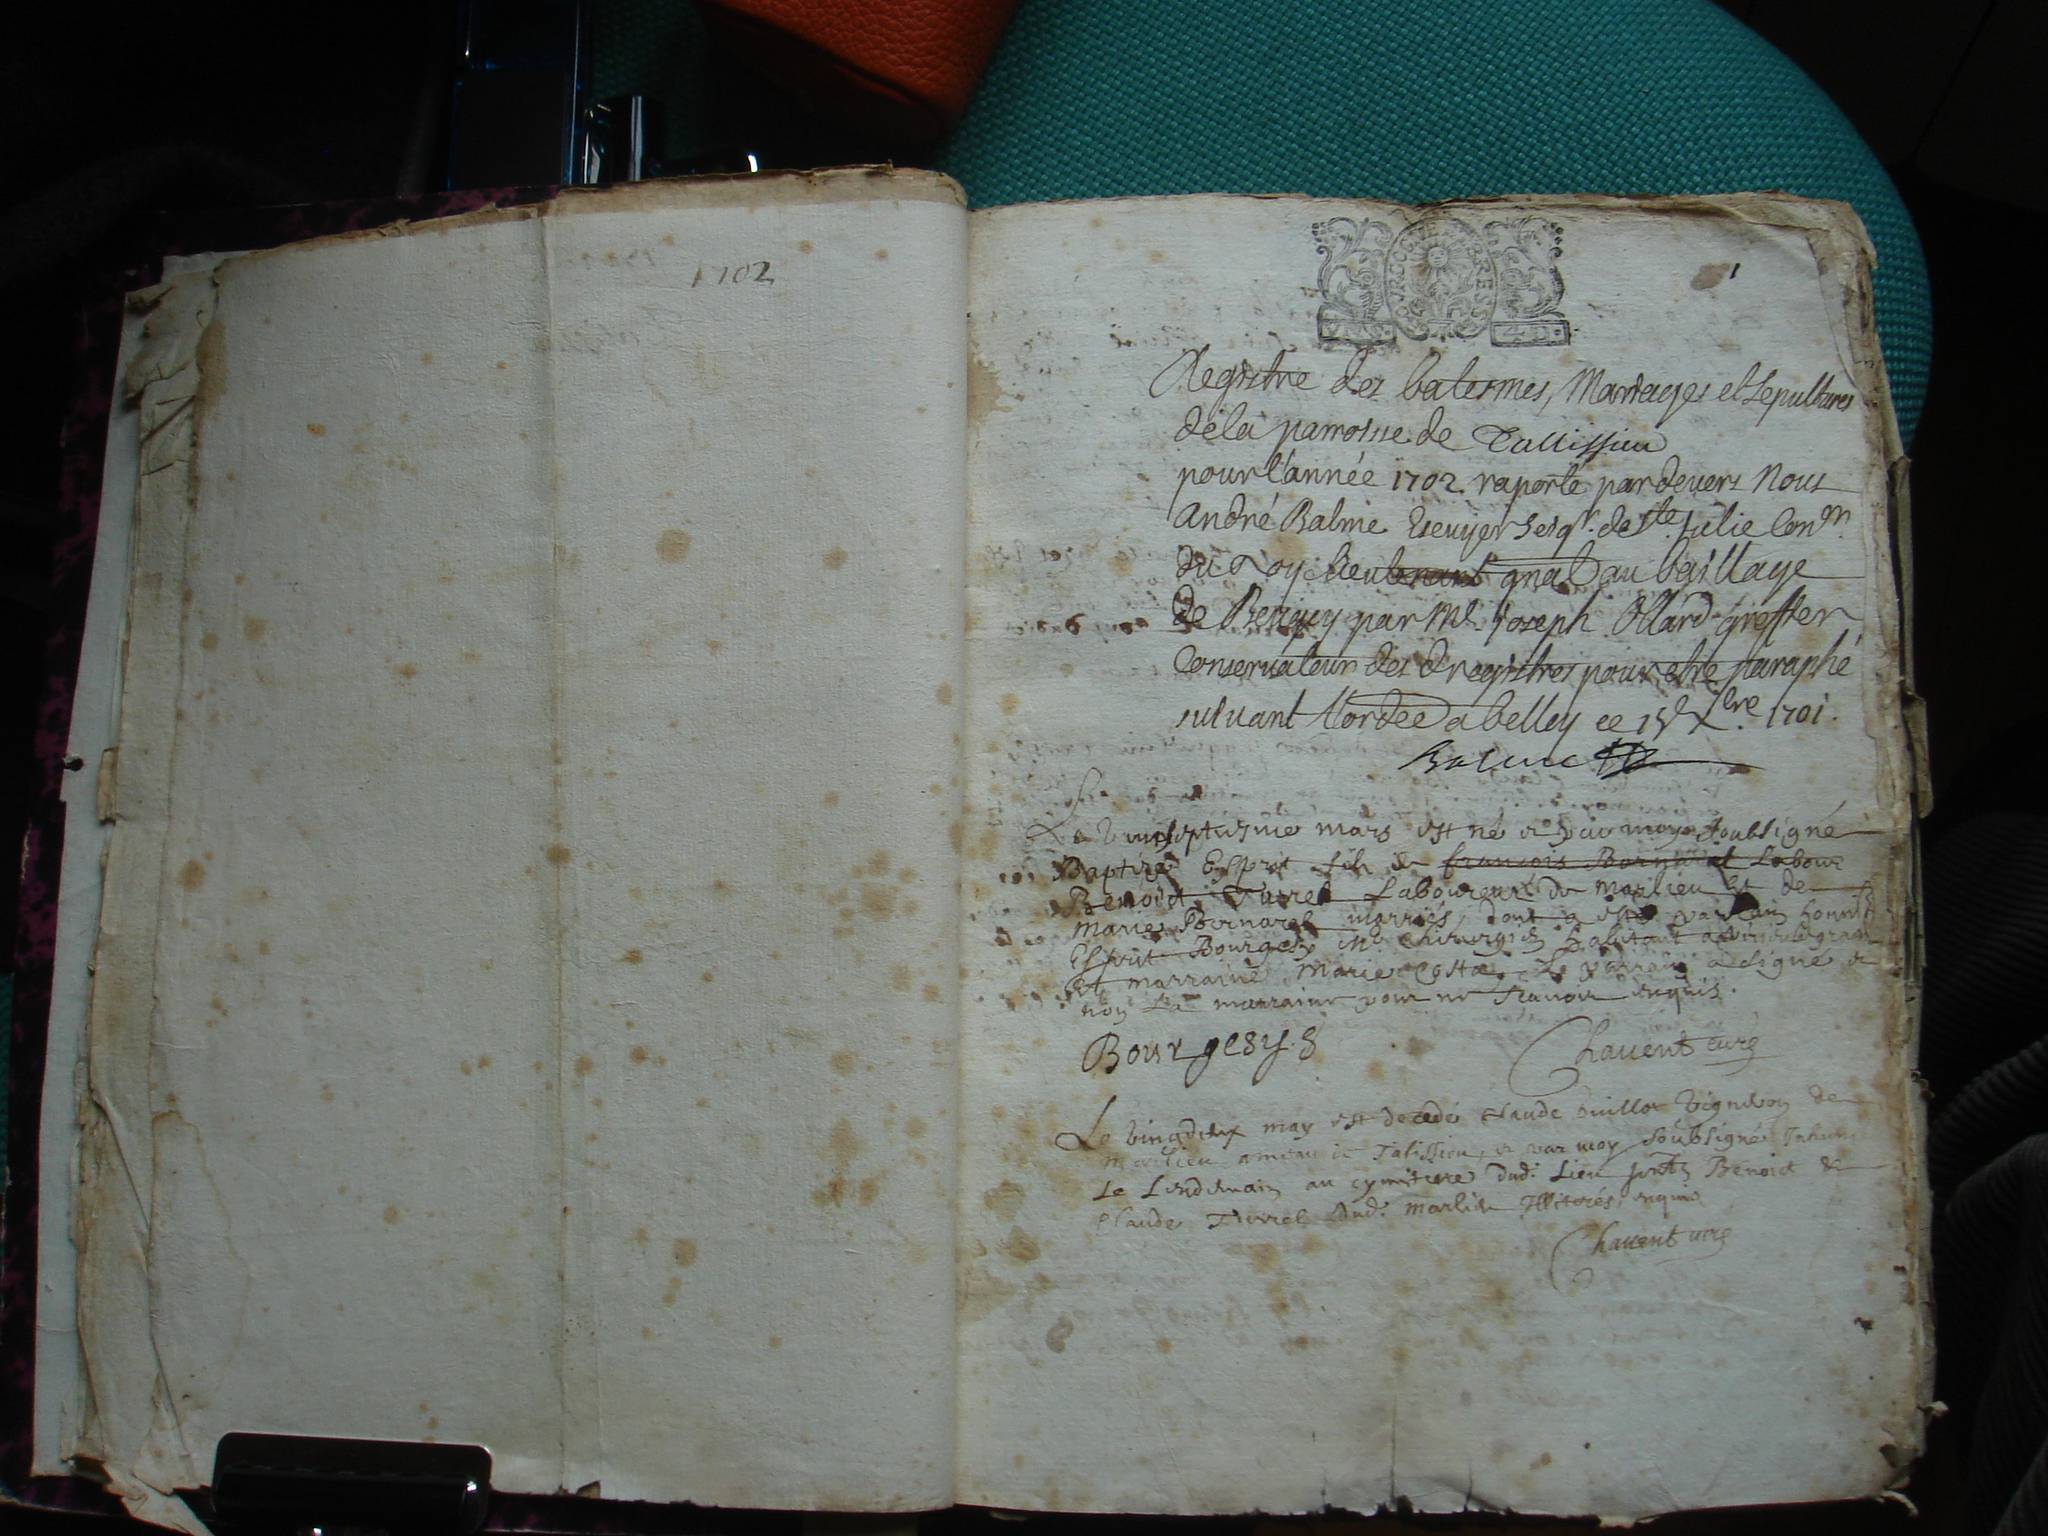 1702
1
BOURGOGNE BRESSE
Registre des batesmes, Mariages et Sepultures
de la parroisse de Tallissieu
pour l'année 1702. raporté pardevers Nous
André Balme Escuyer Seigr. de Ste. Julie Conen.
du Roy lieutenant gnal au baillage
de Beugey par Me. Joseph Ollard greffier
Conservateur des dregistres pour estre paraphé
suivant l'ordce a belley ce 15e Xbre. 1701.
Balme
Le vinseptiesme mars est né et par moy soubsigné
Baptizé Esprit fils de françois Bernard Labour
Benoict Turrel Laboureur de Marlieu et de
Marie Bernard marriés, dont a esté parrain honnte
Esprit Bourgesy me. chirurgien habitant a
Et marraine Marie Costaz Le parrain a signé et
non La marraine pour ne scavoir enquis.
Bourgesy.
Chavent curé
Le vingdeux may est decedé Claude vigneron de
Marlieu ameau de Talissieu, et par moy soubsigné Inhumé
Le Lendemain au cymitiere dud. Lieu pnts Benoict &
Claude Turrel dud. Marlieu Illiterés, enquis
Chavent curé